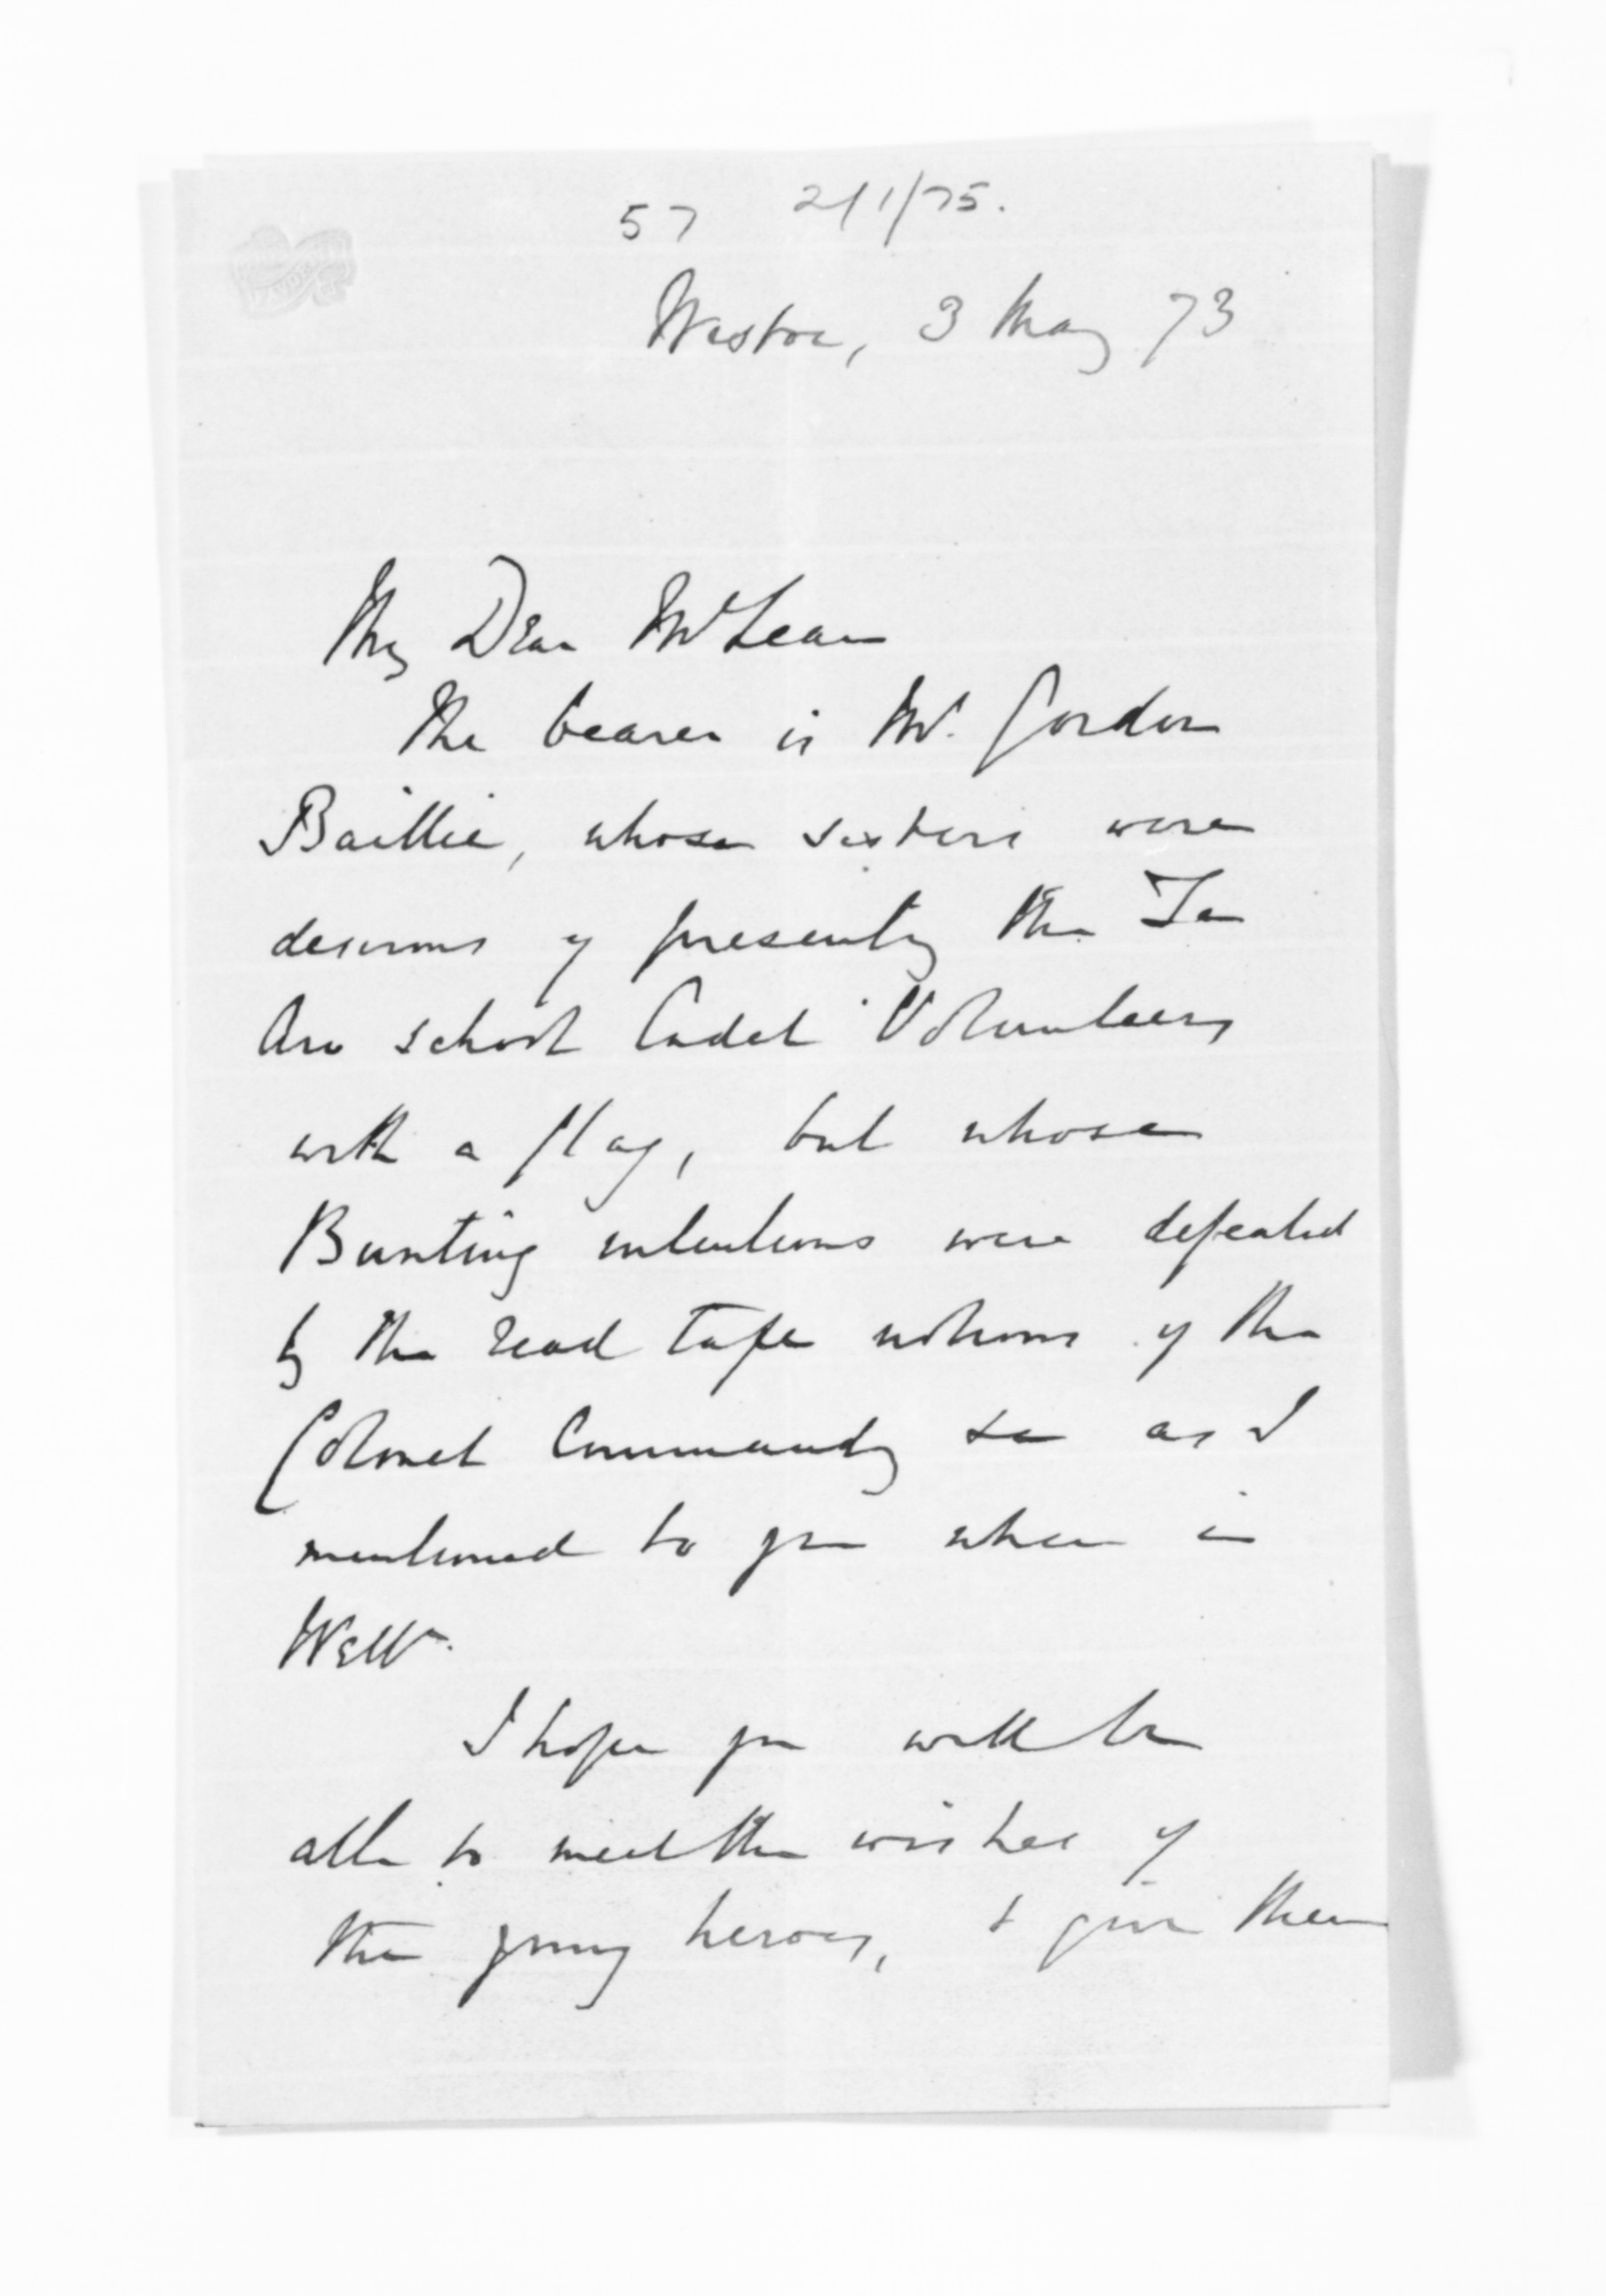 57 2/1/75.
Westoe, 3 May 73
My Dear McLean
The bearer is Mr. Gordon
Baillie, whose sisters were
desirous of presenting the Te
Aro School Cadet Volunteers
with a flag, but whose
Bunting intentions were defeated
by the read tape notions of the
Colonel Commanding &c as I
mentioned to you when in
Welln.
I hope you will be
able to meet the wishes of
the young heroes, & give them